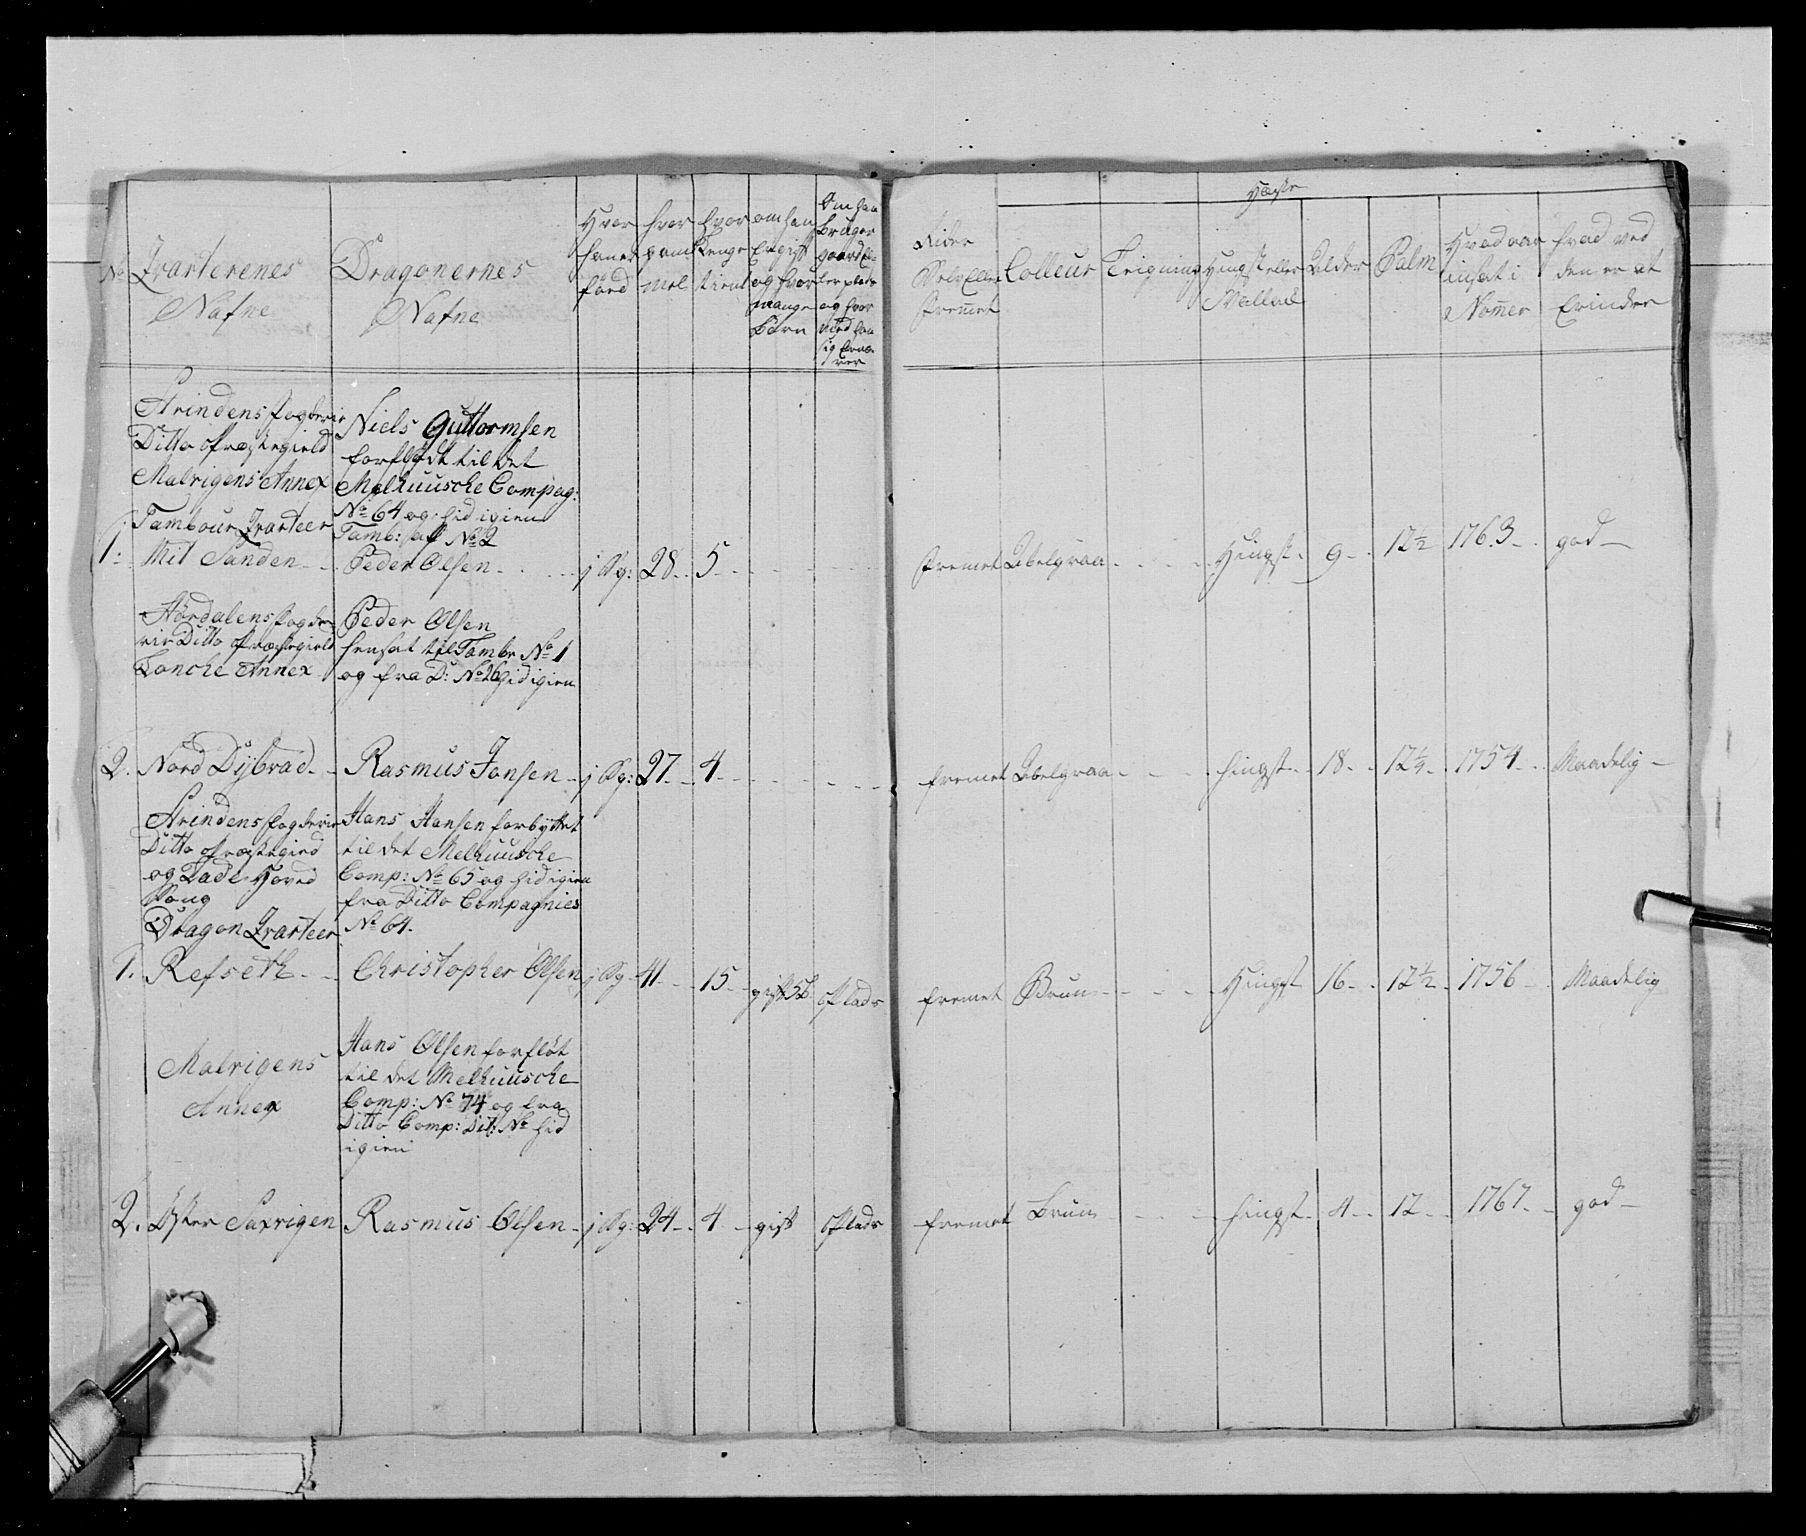 No
Qvarterenes
Nafne
Dragonernes
Nafne
Hvor
han er
föed
hvor
gammel
hvor
lenge
tient
om han
er gift
og hvor
mange
börn
Om han
bruger
gaard el-
ler plads
og hvor
med han
sig ernæ-
rer
Rider
Selv Eller
fremet
Hæste
Colleur
Teigning
Hingst eller
Vallak
Alder
Palm
Hvad aar
indsat i
Nomer
hvad ved
den er at
Erindre
Strindens Fogderie
Ditto Præstegield
Malvigens Annex
Tambour Qvarteer
Niels Guttormsen
forflödt til det
Melhuusche Compag:
No 64 og hid igien
Tamb: No 2
1: Mit Sanden - - Peder Olsen - - - j Ng: 28 - 5 - - - fremet Abelgraa - - - Hingst - 9 - - 12 1/2 1763 - god -
Nordalens Fogde-
rie Ditto Præstegield
Lonche Annex
Peder Olsen
hensat til Tambr No 1
og fra D: No 26 hid igien
2. Nord Dybvad - - Rasmus Jonsen - j Ng: 27 - 4 - - - fremet Abelgraa - - - hingst - 18 - - 12 1/4 - 1754 - Maadelig -
Strindens Fogderie
Ditto Præstegield
og Lade Hoved
Song
Dragon Qvarteer
Hans Hansen forbyttet
til det Melhuusche
Comp: No 65 og hid igien
fra Ditto Compagnies
No 64.
1. Refseth - - Christopher Olsen j Ng - 41 - - 15 - gift 5b Plads fremet Brun - - - Hingst 16 - - 12 1/2 - 1756 - Maadelig
Malvigens
Annex
Hans Olsen forflöt
til det Melhuusche
Comp: No 74 og fra
Ditto Comp: Dit: No hid
igien
2. Öster Saxvigen Rasmus Olsen - j Ng: 24 - 4 - gift Plads fremet Brun - - - hingst - 4 - - 12 - - 1767 - - god -